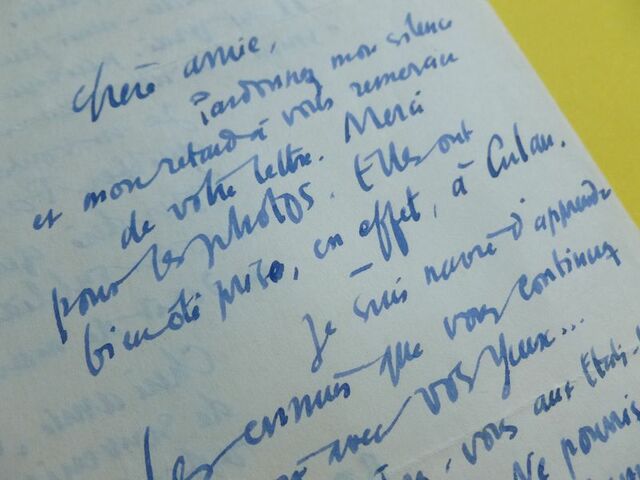 Chère amie,
Pardonnez mon silence
et mon retard à vous remercier
de votre lettre. Merci
pour les photos. Elles ont
bien été prises, en effet, à Culan.
Je suis navré d'apprendre
les ennuis que vous continuez
avec vos yeux...
, vous aux Etats-
Ne pourris